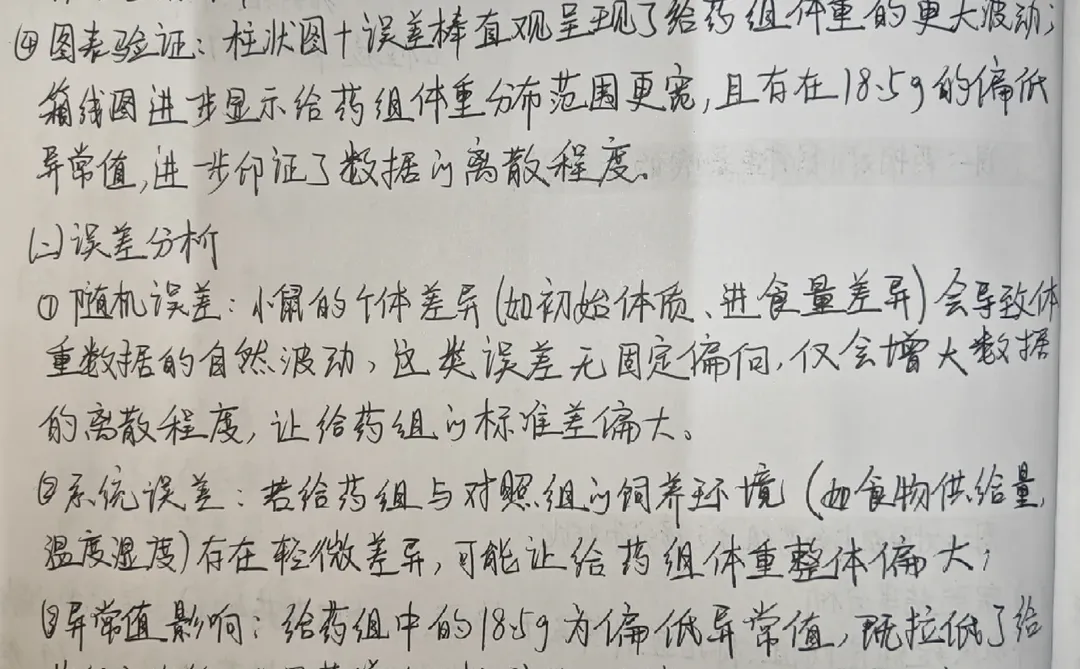 ④图表验证：柱状图+误差棒直观呈现了给药组体重的更大波动；
箱线图进步显示给药组体重分布范围更宽，且存在18.5g的偏低
异常值，进一步印证了数据的离散程度。
(二)误差分析
①随机误差：小鼠的个体差异(如初始体质、进食量差异)会导致体
重数据的自然波动，这类误差无固定偏向，仅会增大数据
的离散程度，让给药组的标准差偏大。
②系统误差：若给药组与对照组的饲养环境(如食物供给量，
温度湿度)存在轻微差异，可能让给药组体重整体偏大；
③异常值影响：给药组中的18.5g为偏低异常值，既拉低了给